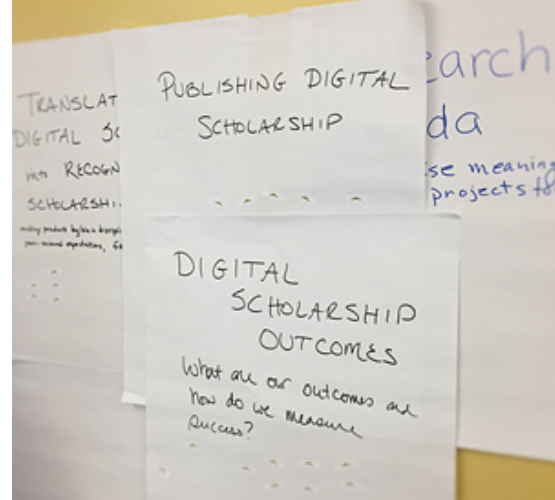 TRANSLAT
DIGITAL SC
into RECOGN
SCHOLARSHI
PUBLISHING DIGITAL
SCHOLARSHIP
earch
da
se meaning
projects to
DIGITAL
SCHOLARSHIP
OUTCOMES
What are our outcomes and
how do we measure
success?